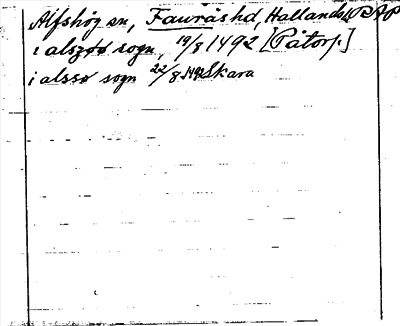 Alfshög sn, Faurås hd, Hallands l. PAP
i alszøø sogn, 19/8 1492 [Påtorp]
i alssø sogn 22/8 1492 Skara